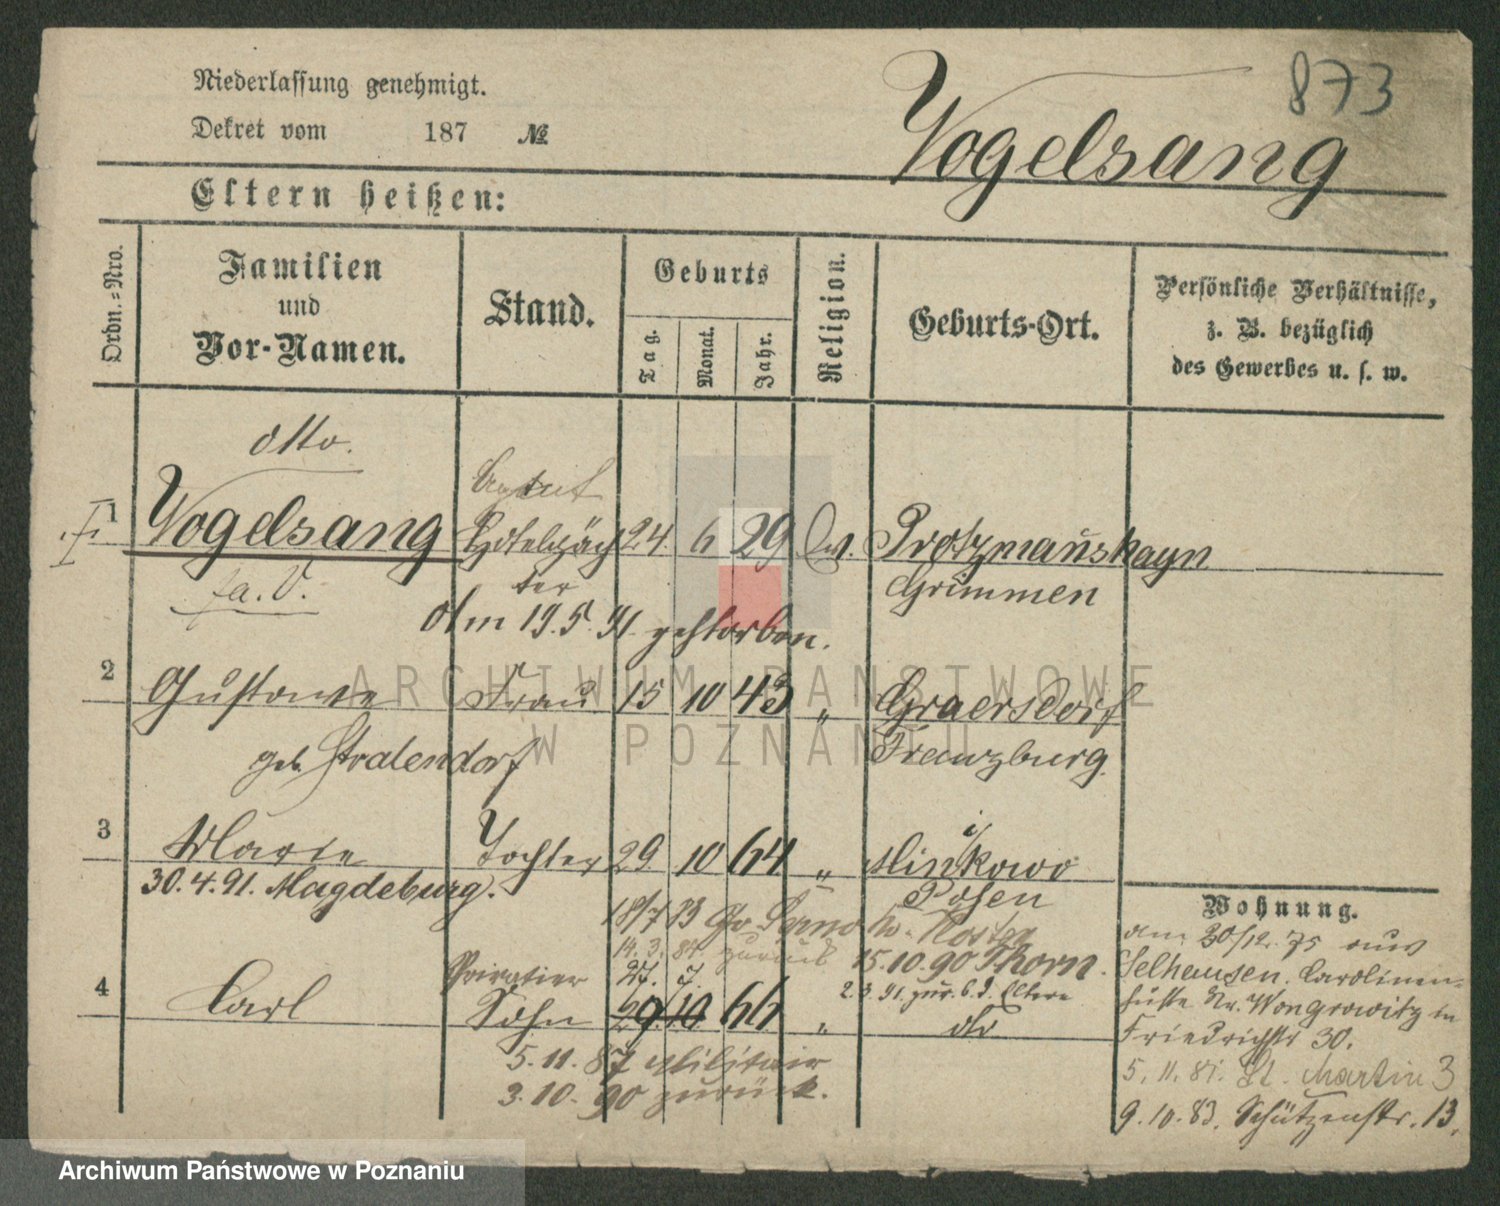 873
Niederlassung genehmigt.
Dekret vom 187 №
Vogelsang
Eltern heißen:
Ordn.=Nro.
Familien
und
Vor-Namen.
Stand.
Geburts
Tag.
Monat.
Jahr.
Religion.
Geburts-Ort.
Persönliche Verhältnisse,
z. B. bezüglich
des Gewerbes u. s. w.
Otto.
Agent
1 Vogelsang Hotelpäch 24. 6 29 Ev. Protzmannshagen
ter Grimmen
Am 19.5.91. gestorben.
2 Gustave Frau 15 10 43 " Graersdorf
geb. Stralendorf Franzburg.
3 Marie Tochter 29. 10 64 " Minikowo
30.4.91. Magdeburg. Posen
18/7 83
14.3.84. zurück 15.10.90 Thorn.
Privatier 27. 7. 2.3.91. zur. b. d. Eltern
4 Carl Sohn 29. 10 66 " dto
5.11.87 Militair
3.10.90 zurück.
Wohnung.
am 20/12. 75 aus
Selhausen. Carolinen-
Wongrowitz in
Friedrichstr 30.
5.11.81. St. Martin 3
9.10.83. Schützenstr. 13.
ARCHIWUM PAŃSTWOWE
W POZNANIU
Archiwum Państwowe w Poznaniu